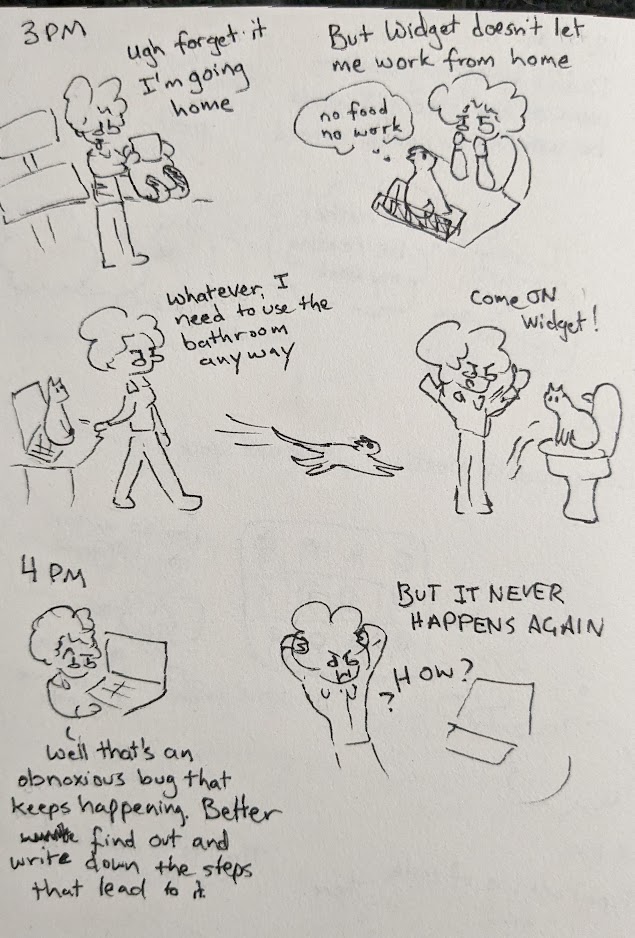 3 PM
Ugh forget it
I'm going
home
But Widget doesn't let
me work from home
no food
no work
Whatever, I
need to use the
bathroom
anyway
Come ON
Widget!
4 PM
Well that's an
obnoxious bug that
keeps happening. Better
find out and
write down the steps
that lead to it.
BUT IT NEVER
HAPPENS AGAIN
HOW?
?